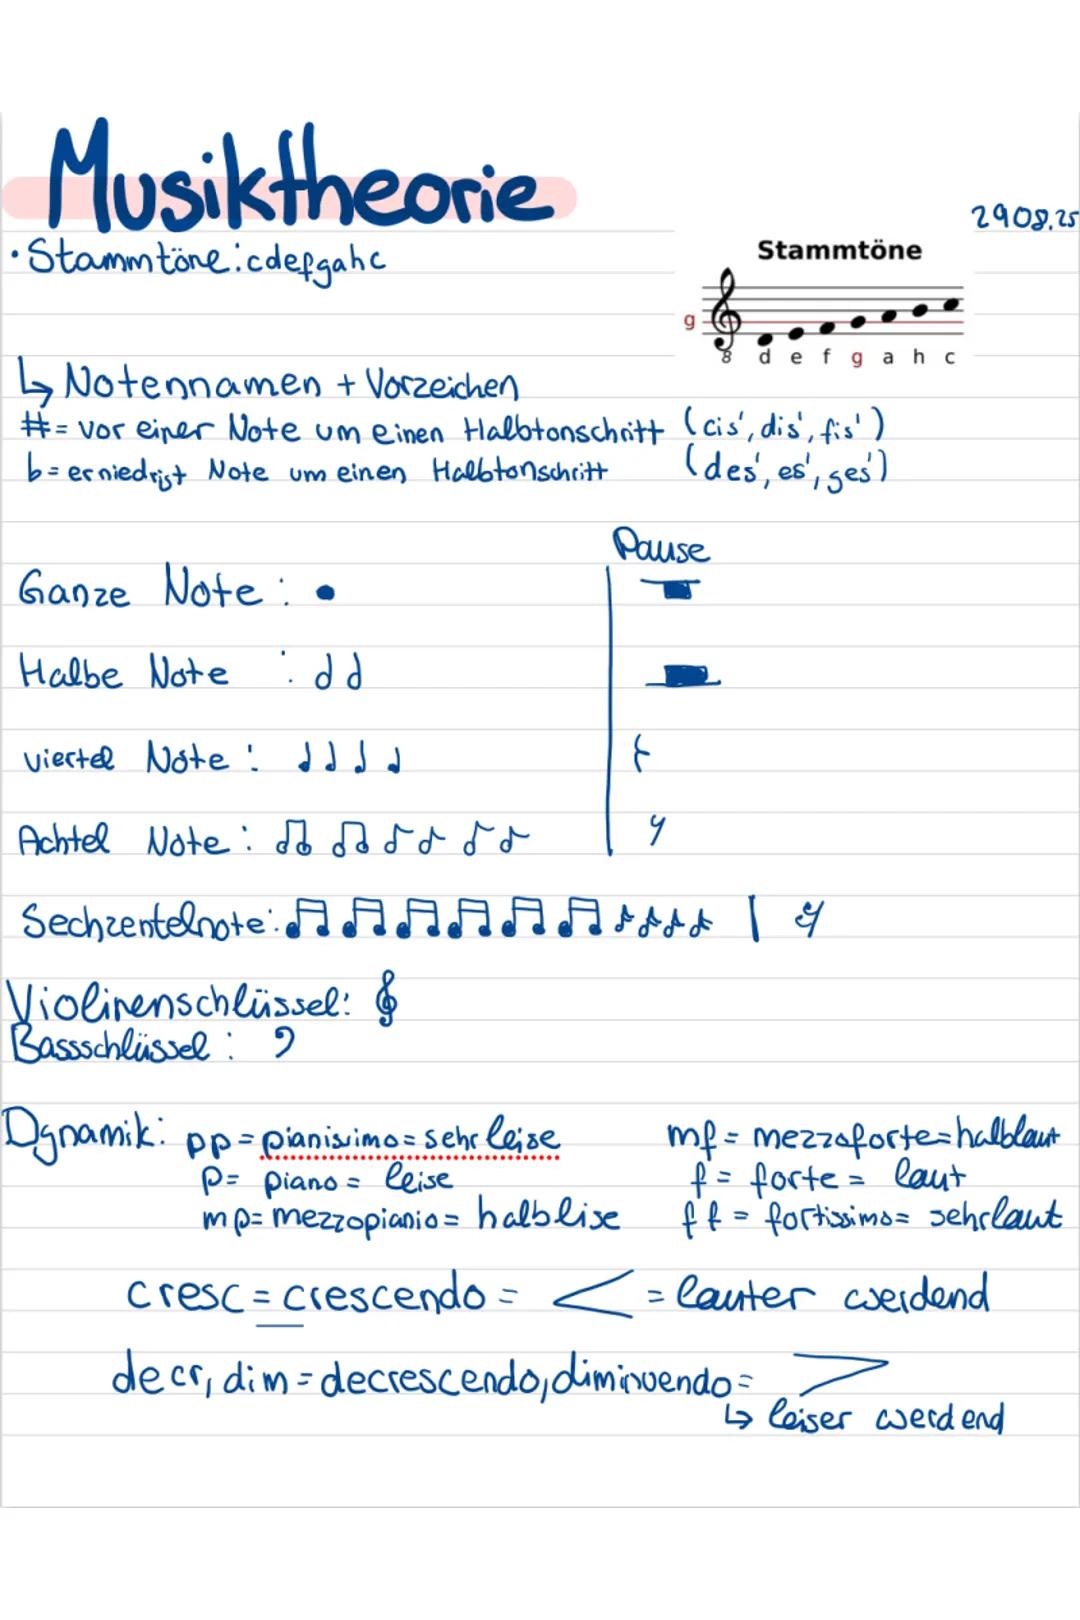 Musiktheorie
2908.25
• Stammtöne: cdefgahc
Stammtöne
g
8 d e f g a h c
↳ Notennamen + Vorzeichen
# = vor einer Note um einen Halbtonschritt (cis', dis', fis')
b = erniedrigt Note um einen Halbtonschritt (des', es', ges')
Pause
Ganze Note :
Halbe Note :
viertel Note :
Achtel Note :
Sechzentelnote:
Violinenschlüssel:
Bassschlüssel :
Dynamik: pp = pianissimo = sehr leise mf = mezzoforte = halblaut
p = piano = leise f = forte = laut
mp = mezzopianio = halblise ff = fortissimo = sehr laut
cresc = crescendo = < = lauter werdend
decr, dim = decrescendo, diminuendo = >
↳ leiser werdend